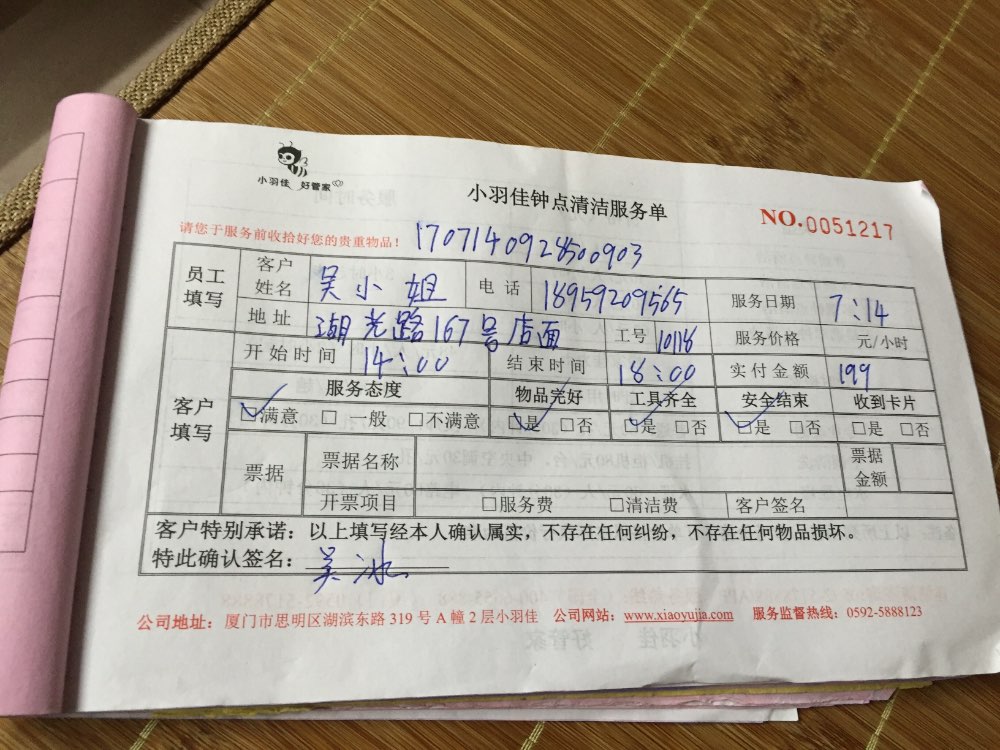 小羽佳 好管家
小羽佳钟点清洁服务单
NO.0051217
请您于服务前收拾好您的贵重物品! 1707140928500903
员工填写 客户姓名 吴小姐 电话 18959209565 服务日期 7:14
地址 湖光路167号店面 工号 10118 服务价格 元/小时
开始时间 14:00 结束时间 18:00 实付金额 199
客户填写 服务态度 物品完好 工具齐全 安全结束 收到卡片
☑满意 □一般 □不满意 ☑是 □否 ☑是 □否 ☑是 □否 □是 □否
票据 票据名称 票据金额
开票项目 □服务费 □清洁费 客户签名
客户特别承诺：以上填写经本人确认属实，不存在任何纠纷，不存在任何物品损坏。
特此确认签名：吴冰
公司地址：厦门市思明区湖滨东路 319 号 A 幢 2 层小羽佳 公司网站：www.xiaoyujia.com 服务监督热线：0592-5888123